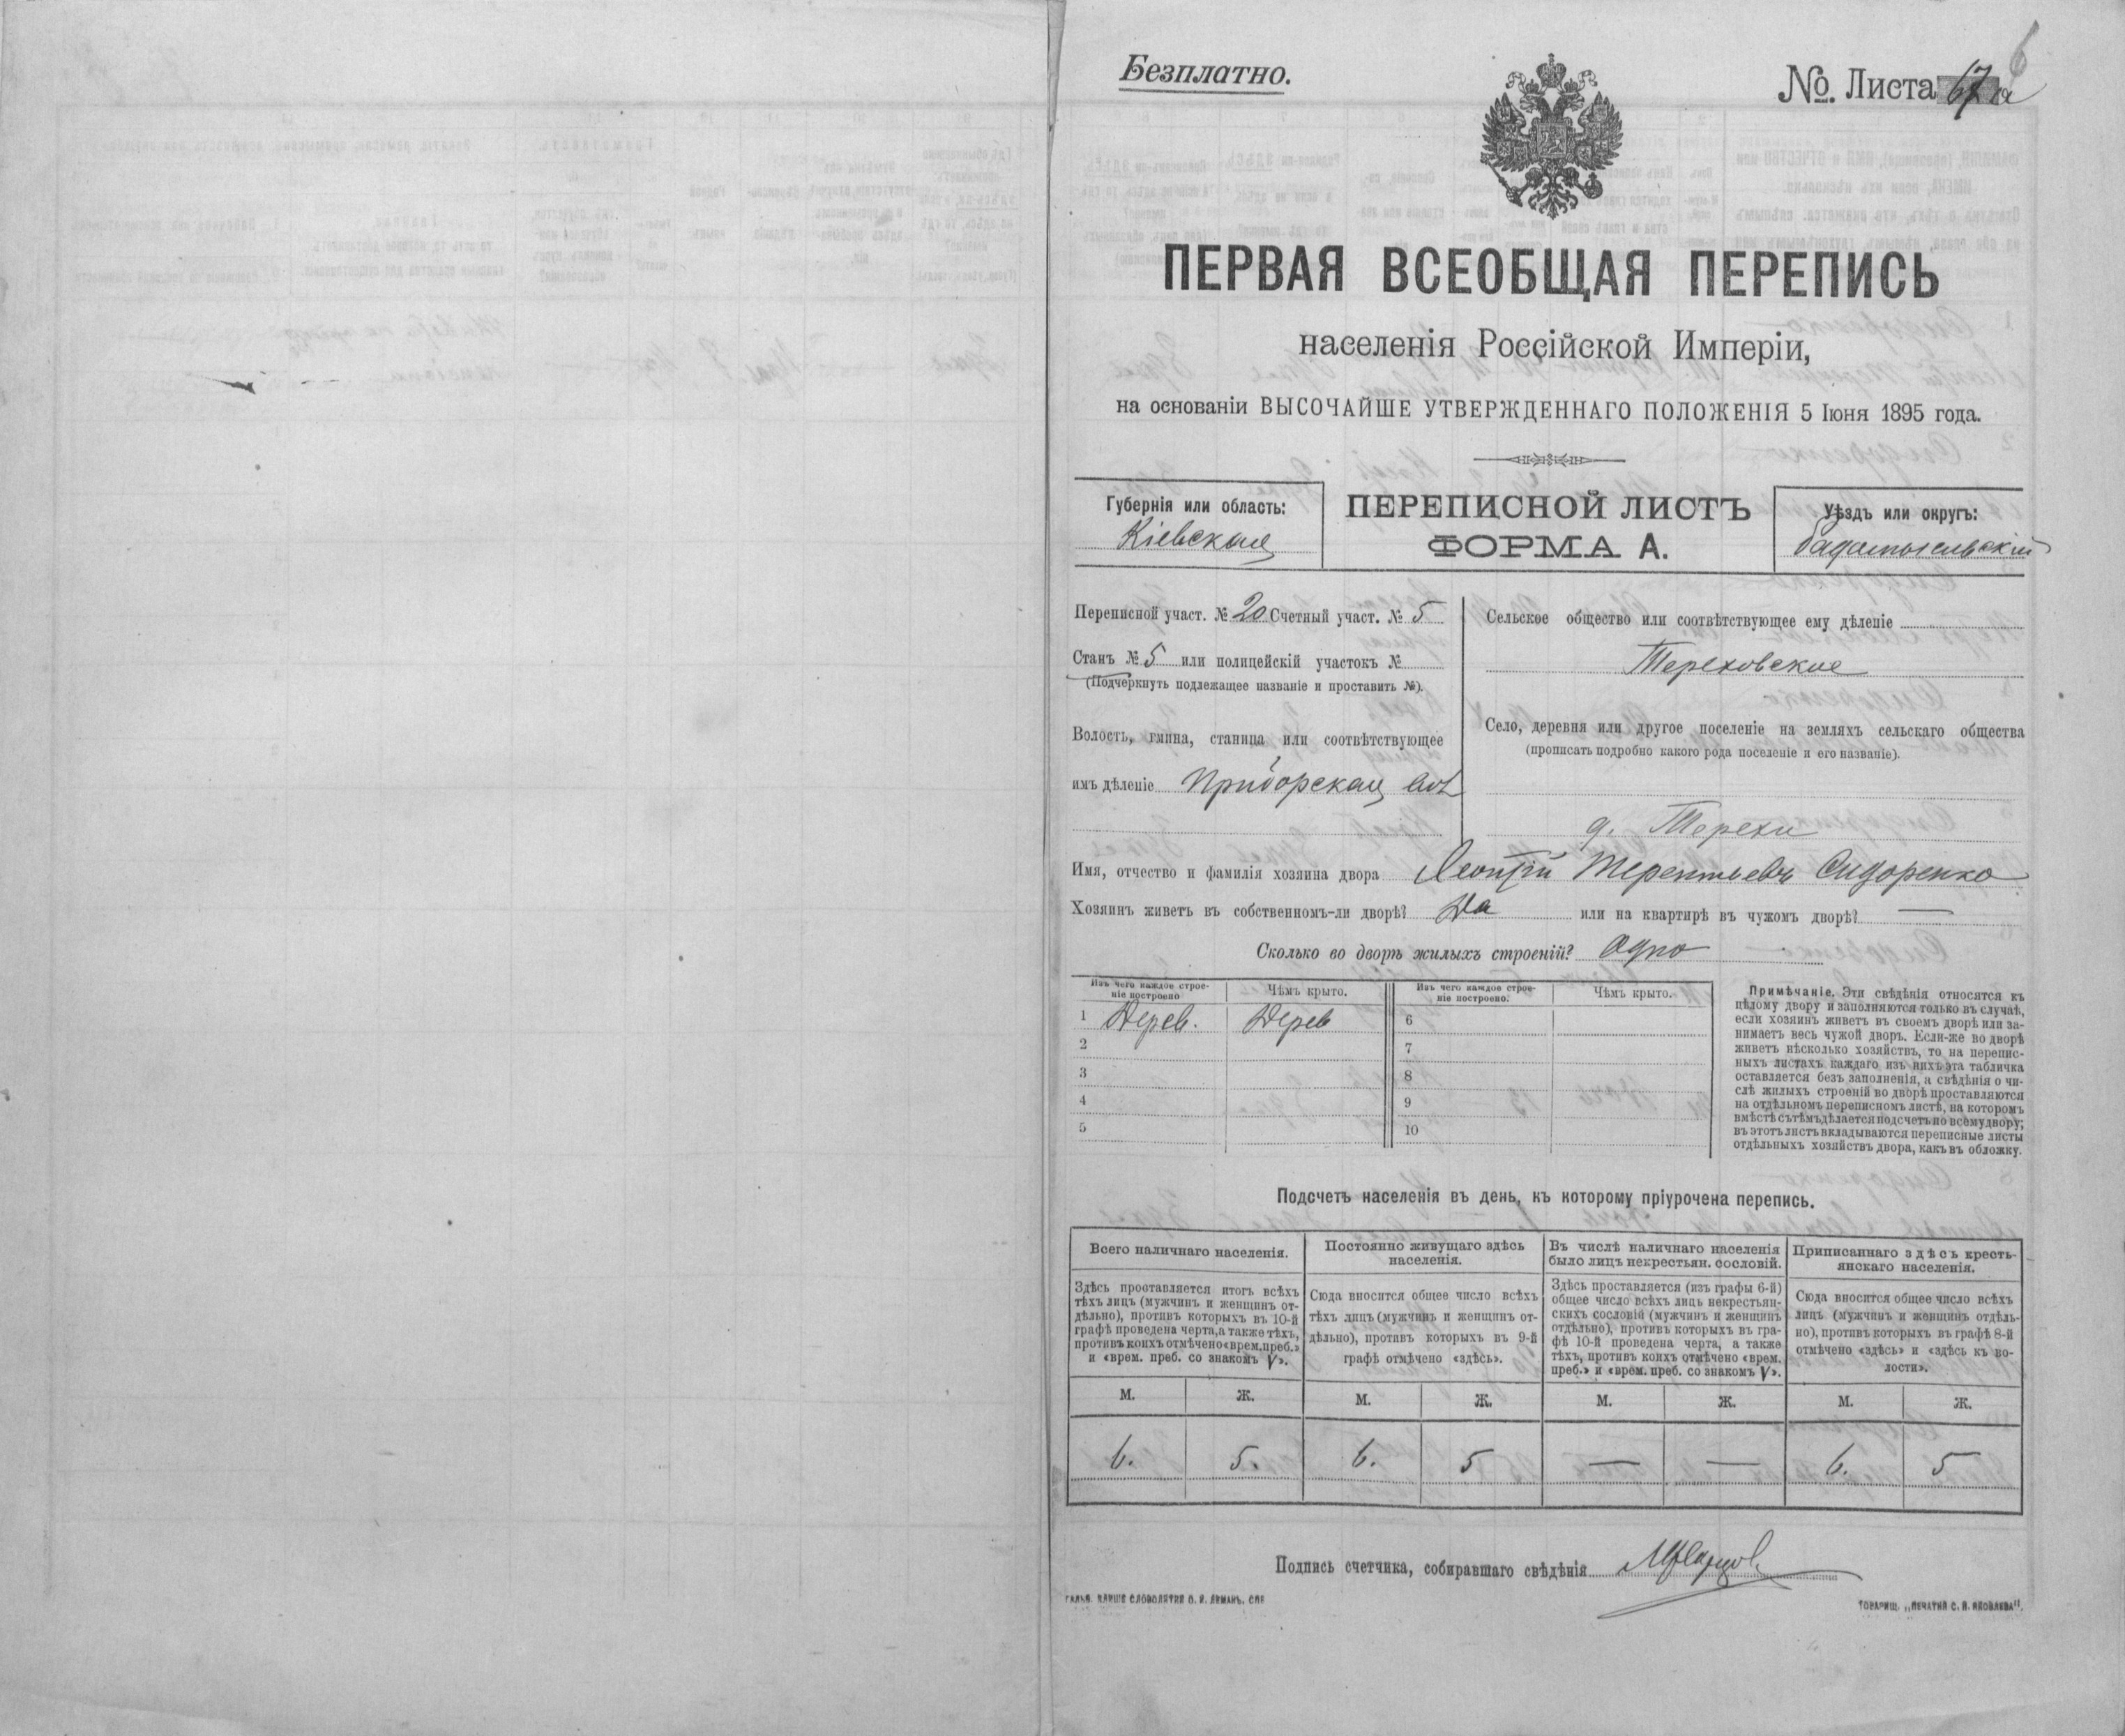 Безплатно.
№. Листа 67 а
6
ПЕРВАЯ ВСЕОБЩАЯ ПЕРЕПИСЬ
населенія Россійской Имперіи,
на основаніи ВЫСОЧАЙШЕ УТВЕРЖДЕННАГО ПОЛОЖЕНІЯ 5 Іюня 1895 года.
Губернія или область:
Кіевская
ПЕРЕПИСНОЙ ЛИСТЪ
ФОРМА А.
Уѣздъ или округъ:
Радомысльскій
Переписной участ. № 20 Счетный участ. № 5
Станъ № 5 или полицейскій участокъ №
(Подчеркнуть подлежащее названіе и проставить №).
Волость, гмина, станица или соотвѣтствующее
имъ дѣленіе Приборская вол
Сельское общество или соотвѣтствующее ему дѣленіе
Тереховское
Село, деревня или другое поселеніе на земляхъ сельскаго общества
(прописать подробно какого рода поселеніе и его названіе).
д. Терехи
Имя, отчество и фамилія хозяина двора Леонтій Терентьевъ Сидоренко
Хозяинъ живетъ въ собственномъ-ли дворѣ? Да или на квартирѣ въ чужомъ дворѣ? —
Сколько во дворѣ жилыхъ строеній? Одно
Изъ чего каждое строе-
ніе построено
Чѣмъ крыто.
Изъ чего каждое строе-
ніе построено.
Чѣмъ крыто.
1 Дерев. Дерев 6
2 7
3 8
4 9
5 10
Примѣчаніе. Эти свѣдѣнія относятся къ
цѣлому двору и заполняются только въ случаѣ,
если хозяинъ живетъ въ своемъ дворѣ или за-
нимаетъ весь чужой дворъ. Если-же во дворѣ
живетъ нѣсколько хозяйствъ, то на перепис-
ныхъ листахъ каждаго изъ нихъ эта табличка
оставляется безъ заполненія, а свѣдѣнія о чи-
слѣ жилыхъ строеній во дворѣ проставляются
на отдѣльномъ переписномъ листѣ, на которомъ
вмѣстѣ съ тѣмъ дѣлается подсчетъ по всему двору;
въ этотъ листъ вкладываются переписные листы
отдѣльныхъ хозяйствъ двора, какъ въ обложку.
Подсчетъ населенія въ день, къ которому пріурочена перепись.
Всего наличнаго населенія.
Здѣсь проставляется итогъ всѣхъ
тѣхъ лицъ (мужчинъ и женщинъ от-
дѣльно), противъ которыхъ въ 10-й
графѣ проведена черта, а также тѣхъ,
противъ коихъ отмѣчено «врем. преб.»
и «врем. преб. со знакомъ V».
М. Ж.
6. 5.
Постоянно живущаго здѣсь
населенія.
Сюда вносится общее число всѣхъ
тѣхъ лицъ (мужчинъ и женщинъ от-
дѣльно), противъ которыхъ въ 9-й
графѣ отмѣчено «здѣсь».
М. Ж.
6. 5
Въ числѣ наличнаго населенія
было лицъ некрестьян. сословій.
Здѣсь проставляется (изъ графы 6-й)
общее число всѣхъ лицъ некрестьян-
скихъ сословій (мужчинъ и женщинъ
отдѣльно), противъ которыхъ въ гра-
фѣ 10-й проведена черта, а также
тѣхъ, противъ коихъ отмѣчено «врем.
преб.» и «врем. преб. со знакомъ V».
М. Ж.
— —
Приписаннаго здѣсь кресть-
янскаго населенія.
Сюда вносится общее число всѣхъ
лицъ (мужчинъ и женщинъ отдѣль-
но), противъ которыхъ въ графѣ 8-й
отмѣчено «здѣсь» и «здѣсь къ во-
лости».
М. Ж.
6. 5
Подпись счетчика, собиравшаго свѣдѣнія
СЛОВОЛИТНЯ О. И. ЛЕМАНЪ. СПБ
ТОВАРИЩ. „ПЕЧАТНЯ С. П. ЯКОВЛЕВА".